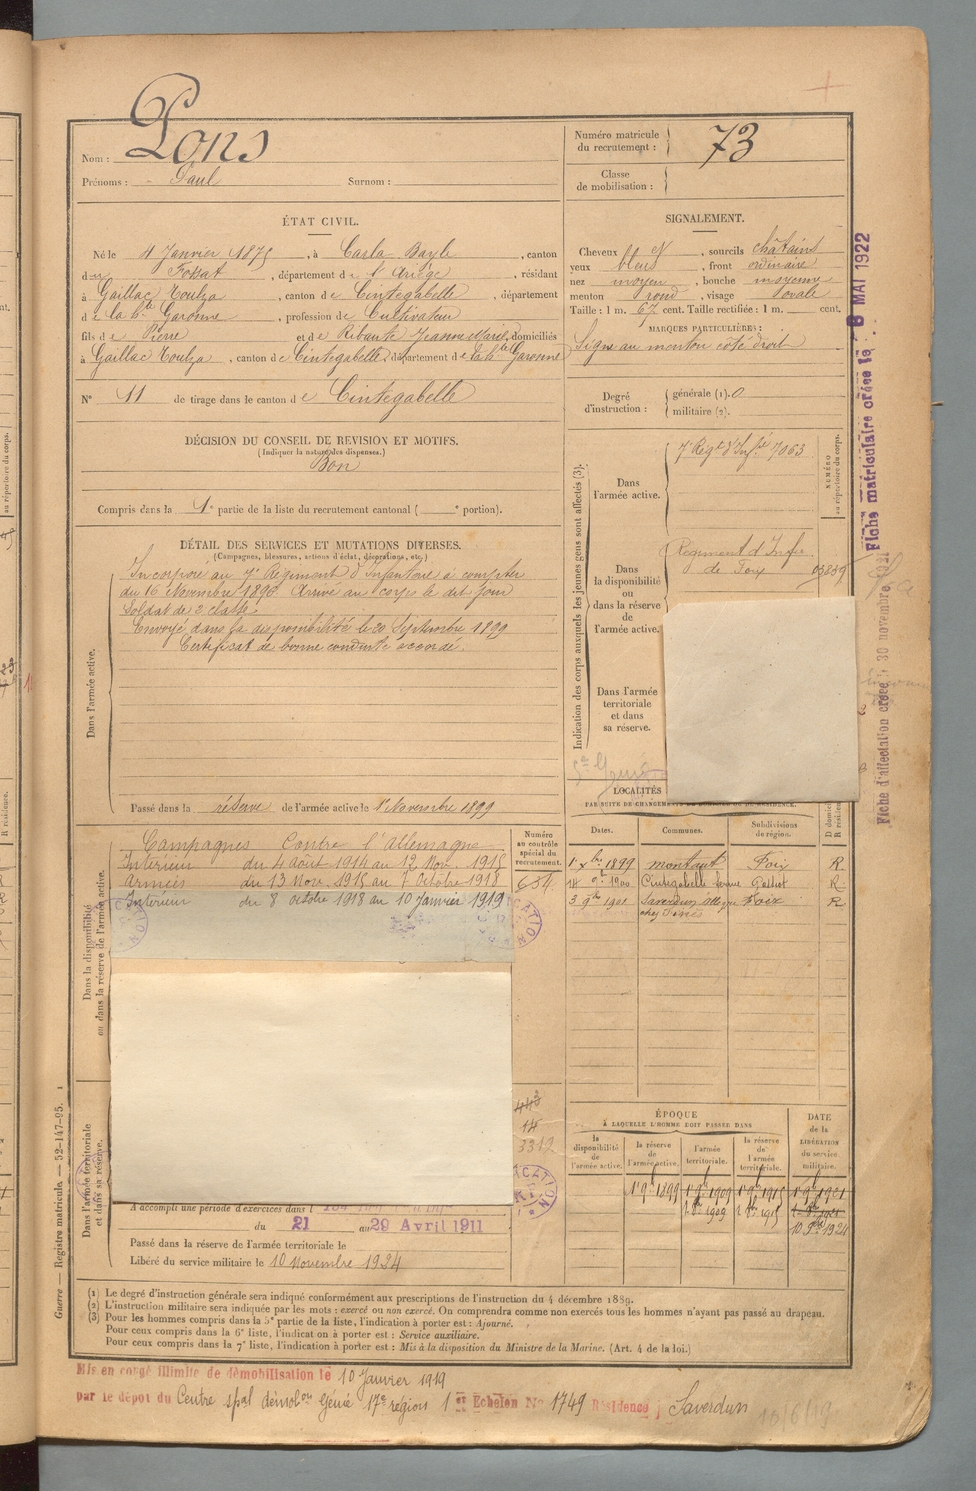 Nom : Pons
Prénoms : Paul Surnom :
Numéro matricule du recrutement : 73
Classe de mobilisation :
ÉTAT CIVIL.
Né le 4 Janvier 1875, à Carla Bayle, canton
de Fossat, département de l'Ariège, résidant
à Gaillac Toulza, canton de Cintegabelle, département
de la Hte Garonne, profession de Cultivateur
fils de Pierre et de Ribaute Jeanne Marie, domiciliés
à Gaillac Toulza, canton de Cintegabelle, département de la Hte Garonne
N° 11 de tirage dans le canton de Cintegabelle
SIGNALEMENT.
Cheveux et, sourcils châtains
yeux bleus, front ordinaire
nez moyen, bouche moyenne
menton rond, visage ovale
Taille : 1 m. 67 cent. Taille rectifiée : 1 m. cent.
MARQUES PARTICULIÈRES :
Signe au menton coté droit
Degré d'instruction : générale (1). 0
militaire (2).
DÉCISION DU CONSEIL DE REVISION ET MOTIFS.
(Indiquer la nature des dispenses.)
Bon
Compris dans la 1e partie de la liste du recrutement cantonal ( e portion).
DÉTAIL DES SERVICES ET MUTATIONS DIVERSES.
(Campagnes, blessures, actions d'éclat, décorations, etc.)
Dans l'armée active.
Incorporé au 7e Régiment d'Infanterie à compter
du 16 Novembre 1896. Arrivé au corps le dit jour
Soldat de 2e classe
Envoyé dans la disponibilité le 20 Septembre 1899
Certificat de bonne conduite accordé.
Passé dans la réserve de l'armée active le 1er Novembre 1899
Indication des corps auxquels les jeunes gens sont affectés (3).
NUMÉRO au répertoire du corps.
Dans l'armée active.
7e Régt d'Infie 7063
Dans la disponibilité ou dans la réserve de l'armée active.
Régiment d'Infie
de Foix 03239
Dans l'armée territoriale et dans sa réserve.
LOCALITÉS
PAR SUITE DE CHANGEMENTS DE DOMICILE OU DE RÉSIDENCE.
Dates. Communes. Subdivisions de région. D domicile. R résidence.
1er Xbre 1899 Montaut Foix R
Cintegabelle R
3 9bre 1901 Saverdun Foix R
Dans la disponibilité ou dans la réserve de l'armée active.
Numéro au contrôle spécial du recrutement.
Campagnes Contre l'allemagne
Intérieur du 4 août 1914 au 12 Nov. 1915
Armées du 13 Nov. 1915 au 7 Octobre 1918
Intérieur du 8 octobre 1918 au 10 Janvier 1919
654
443
14
3312
ÉPOQUE
À LAQUELLE L'HOMME DOIT PASSER DANS
la disponibilité de l'armée active.
la réserve de l'armée active.
l'armée territoriale.
la réserve de l'armée territoriale.
DATE de la LIBÉRATION du service militaire.
1er 9bre 1899 1er 9bre 1909 1er 9bre 1915 1er 9bre 1921
10 9bre 1924
Dans l'armée territoriale et dans sa réserve.
A accompli une période d'exercices dans l
du 21 au 29 Avril 1911
Passé dans la réserve de l'armée territoriale le
Libéré du service militaire le 10 Novembre 1924
(1) Le degré d'instruction générale sera indiqué conformément aux prescriptions de l'instruction du 4 décembre 1889.
(2) L'instruction militaire sera indiquée par les mots : exercé ou non exercé. On comprendra comme non exercés tous les hommes n'ayant pas passé au drapeau.
(3) Pour les hommes compris dans la 5e partie de la liste, l'indication à porter est : Ajourné.
Pour ceux compris dans la 6e liste, l'indication à porter est : Service auxiliaire.
Pour ceux compris dans la 7e liste, l'indication à porter est : Mis à la disposition du Ministre de la Marine. (Art. 4 de la loi.)
Mis en congé illimité de démobilisation le 10 Janvier 1919
par le dépôt du Centre spal démolon Génie 17e région 1er Echelon No 1749 Résidence : Saverdun
10/6/19
Guerre — Registre matricule. — 52-147-95.
Fiche matriculaire créée le : 8 MAI 1922
Fiche d'affectation créée le 30 novembre 1921